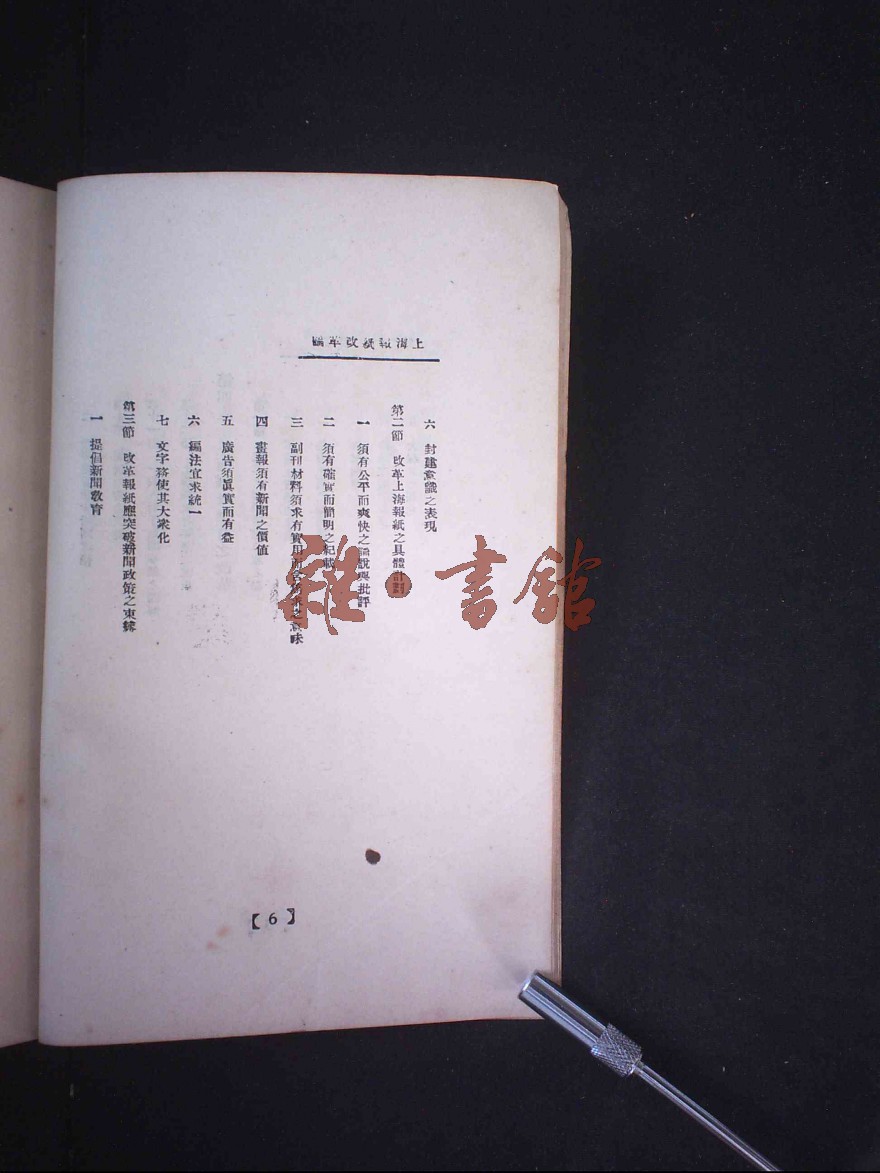 上海報紙改革論
六　封建意識之表現
第二節　改革上海報紙之具體計劃
一　須有公平而爽快之論說與批評
二　須有確實而簡明之紀載
三　副刊材料須求有實用而含之意味
四　畫報須有新聞之價值
五　廣告須眞實而有益
六　編法宜求統一
七　文字務使其大衆化
第三節　改革報紙應突破新聞政策之束縛
一　提倡新聞敎育
【6】
雜·書館